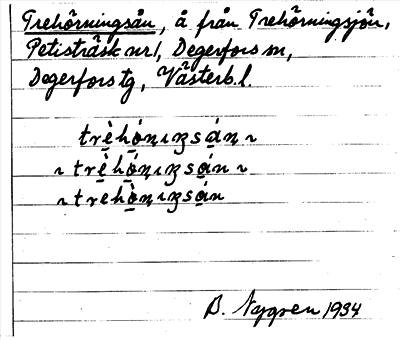 Trehörningsån, å från Trehörningsjön,
Petisträsk nr 1, Degerfors sn,
Degerfors tg, Västerb. l.
trèhónıŋsán ~
~ trèhónıŋsán ~
~ trehònıŋsán
B. Nygren 1934